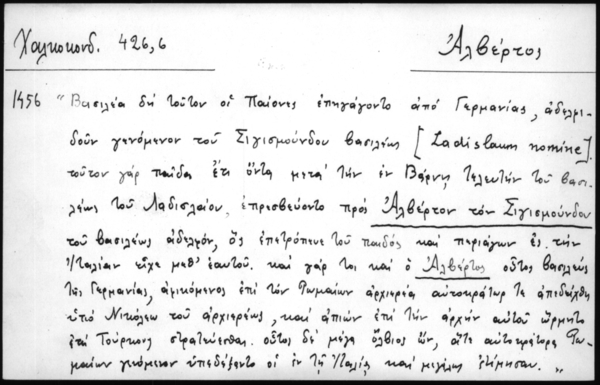 Χαλκοκονδ. 426,6
Ἀλβέρτος
1456 "Βασιλέα δὴ τοῦτον οἱ Παίονες ἐπηγάγοντο ἀπὸ Γερμανίας, ἀδελφι-
δοῦν γενόμενον τοῦ Σιγισμούνδου βασιλέως [Ladislaum nomine].
τοῦτον γὰρ παῖδα ἔτι ὄντα μετὰ τὴν ἐν Βάρνῃ τελευτὴν τοῦ βασι-
λέως τοῦ Λαδισλάου, ἐπρεσβεύοντο πρὸς Ἀλβέρτον τὸν Σιγισμούνδου
τοῦ βασιλέως ἀδελφόν, ὃς ἐπετρόπευε τοῦ παιδὸς καὶ περιάγων ἐς τὴν
Ἰταλίαν εἶχε μεθ' ἑαυτοῦ. καὶ γάρ τοι καὶ ὁ Ἀλβέρτος οὗτος βασιλεὺς
τῆς Γερμανίας, ἀφικόμενος ἐπὶ τὸν Ῥωμαίων ἀρχιερέα αὐτοκράτωρ τε ἀπεδείχθη
ὑπὸ Νικόλεω τοῦ ἀρχιερέως, καὶ ἀπιὼν ἐπὶ τὴν ἀρχὴν αὐτοῦ ὥρμητο
ἐπὶ Τούρκους στρατεύεσθαι. οὗτος δὲ μέγα ὄλβιος ὤν, ἅτε αὐτοκράτορα Ῥω-
μαίων γενόμενον ὑπεδέξαντο οἱ ἐν τῇ Ἰταλίᾳ καὶ μεγάλως ἐτίμησαν."